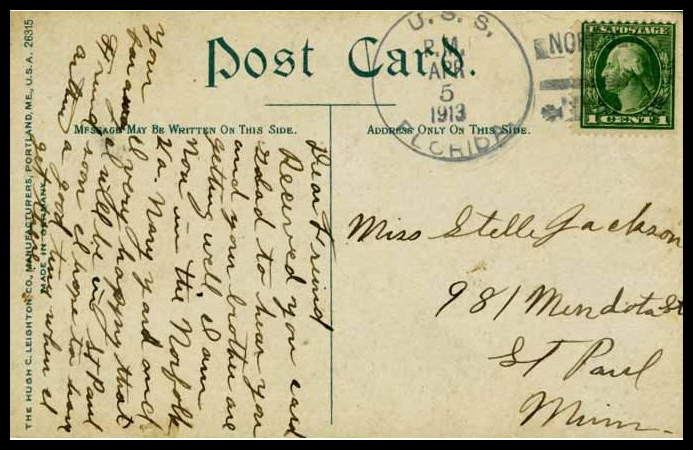 Post Card.
MESSAGE MAY BE WRITTEN ON THIS SIDE.
ADDRESS ONLY ON THIS SIDE.
U.S.S.
P.M.
APR
5
1913
FLORIDA
NOR
U.S. POSTAGE
1 CENT 1
Miss Stella Jackson
981 Mendota St
St Paul
Minn.
Dear Freind
Received you card
Glad to hear you
and your brother are
getting well I am
Now in the Norfolk
Va. Navy yard and
am all very happy that
I will be in St Paul
soon I hope to have
a good time when I
get
Your
Friend
Arthur
THE HUGH C. LEIGHTON CO., MANUFACTURERS, PORTLAND, ME., U.S.A. 26315
MADE IN GERMANY